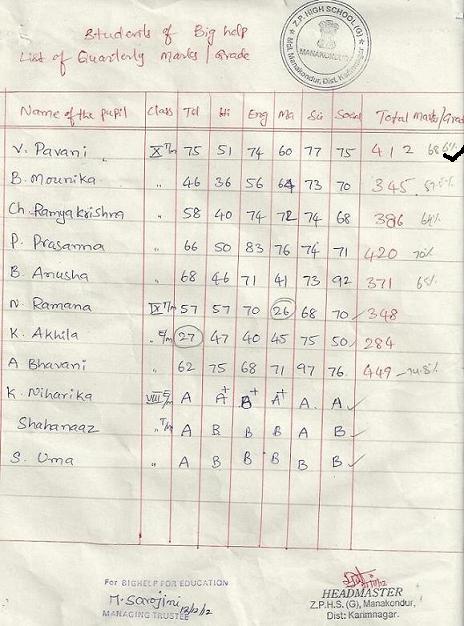 Students of Big help
List of Quarterly Marks / Grade
Z.P. HIGH SCHOOL (G)
MANAKONDUR
Mdl. Manakondur, Dist. Karimnagar.
Name of the pupil Class Tel Hi Eng Ma Sci Social Total Marks/Grade
V. Pavani X T/m 75 51 74 60 77 75 412
B. Mounika " 46 36 56 64 73 70 345
Ch. Ramyakrishna " 58 40 74 72 74 68 386 64%
P. Prasanna " 66 50 83 76 74 71 420 70%
B. Anusha " 68 46 71 41 73 92 371 65%
N. Ramana IX T/m 57 57 70 26 68 70 348
K. Akhila " E/m 27 47 40 45 75 50 284
A Bhavani " 62 75 68 71 97 76 449 74.8%
K. Niharika VIII E/m A A+ B+ A+ A A
Shahanaaz " T/m A B B B A B
S. Uma " A B B B B B
For BIGHELP FOR EDUCATION
M. Sarojini 13/2/12
MANAGING TRUSTEE
HEADMASTER
Z.P.H.S. (G), Manakondur,
Dist: Karimnagar.